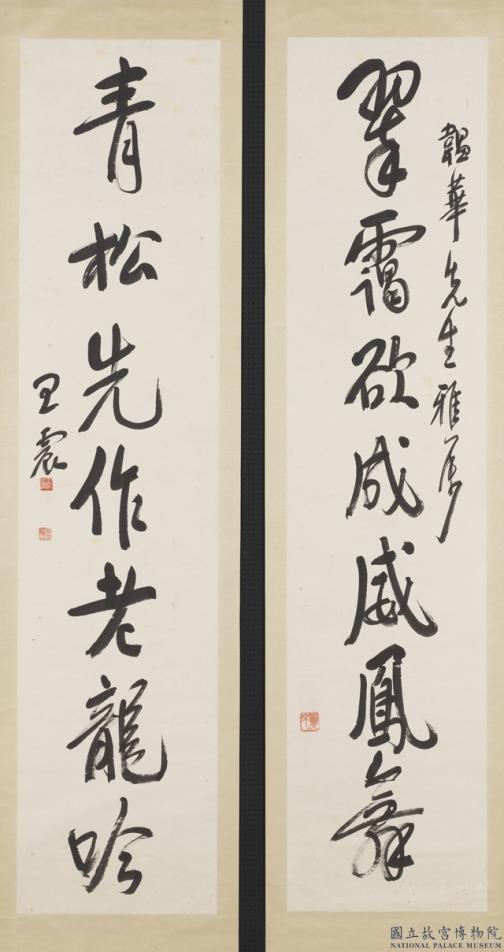 韞華先生雅屬
翠靄欲成威鳳舞
青松先作老龍吟
王震
國立故宮博物院
NATIONAL PALACE MUSEUM